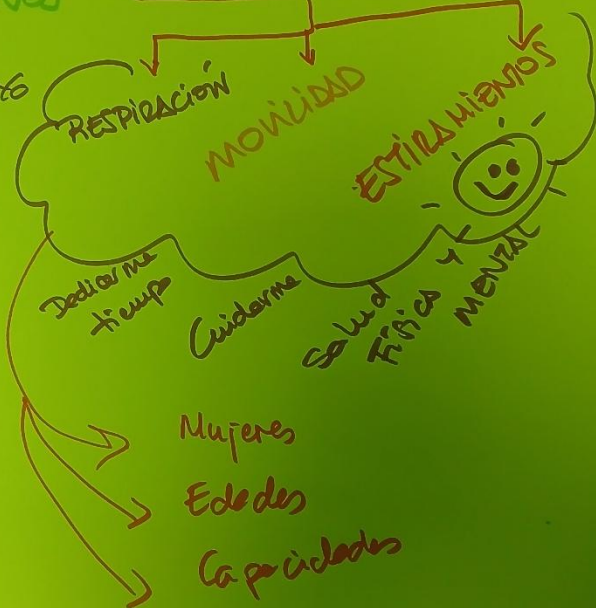 RESPIRACIÓN
MOVILIDAD
ESTIRAMIENTOS
Dedicarme
tiempo
Cuidarme
Salud
Física y
MENTAL
Mujeres
Edades
Capacidades